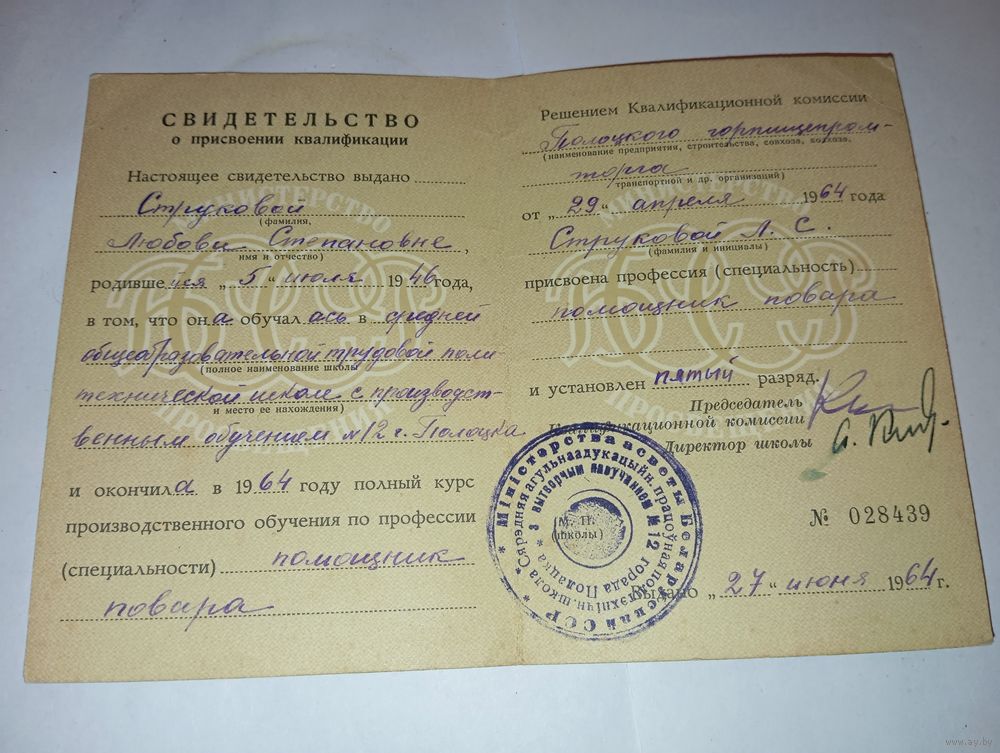 СВИДЕТЕЛЬСТВО
о присвоении квалификации
Настоящее свидетельство выдано
Струковой
(фамилия,
Любови Степановне,
имя и отчество)
родивше йся „ 5 “ июля 1946 года,
в том, что она обучалась в средней
общеобразовательной трудовой поли-
(полное наименование школы
технической школе с производст-
и место ее нахождения)
венным обучением №12 г. Полоцка
и окончила в 1964 году полный курс
производственного обучения по профессии
(специальности) помощник
повара
Решением Квалификационной комиссии
Полоцкого горпищепром-
(наименование предприятия, строительства, совхоза, колхоза,
торга
транспортной и др. организаций)
от „ 29 “ апреля 1964 года
Струковой Л. С.
(фамилия и инициалы)
присвоена профессия (специальность)
помощник повара
и установлен пятый разряд.
Председатель
Квалификационной комиссии
Директор школы
№ 028439
М. П.
(школы)
Выдано „ 27 “ июня 1964 г.
Міністэрства асветы Беларускай ССР
Сярэдняя агульнаадукацыйн. працоўная політэхнічн. школа
з вытворчым навучаннем №12 горада Полацка
МИНИСТЕРСТВО
БССР
ПРОСВЕЩЕНИЯ
МИНИСТЕРСТВО
БССР
ПРОСВЕЩЕНИЯ
www.ay.by